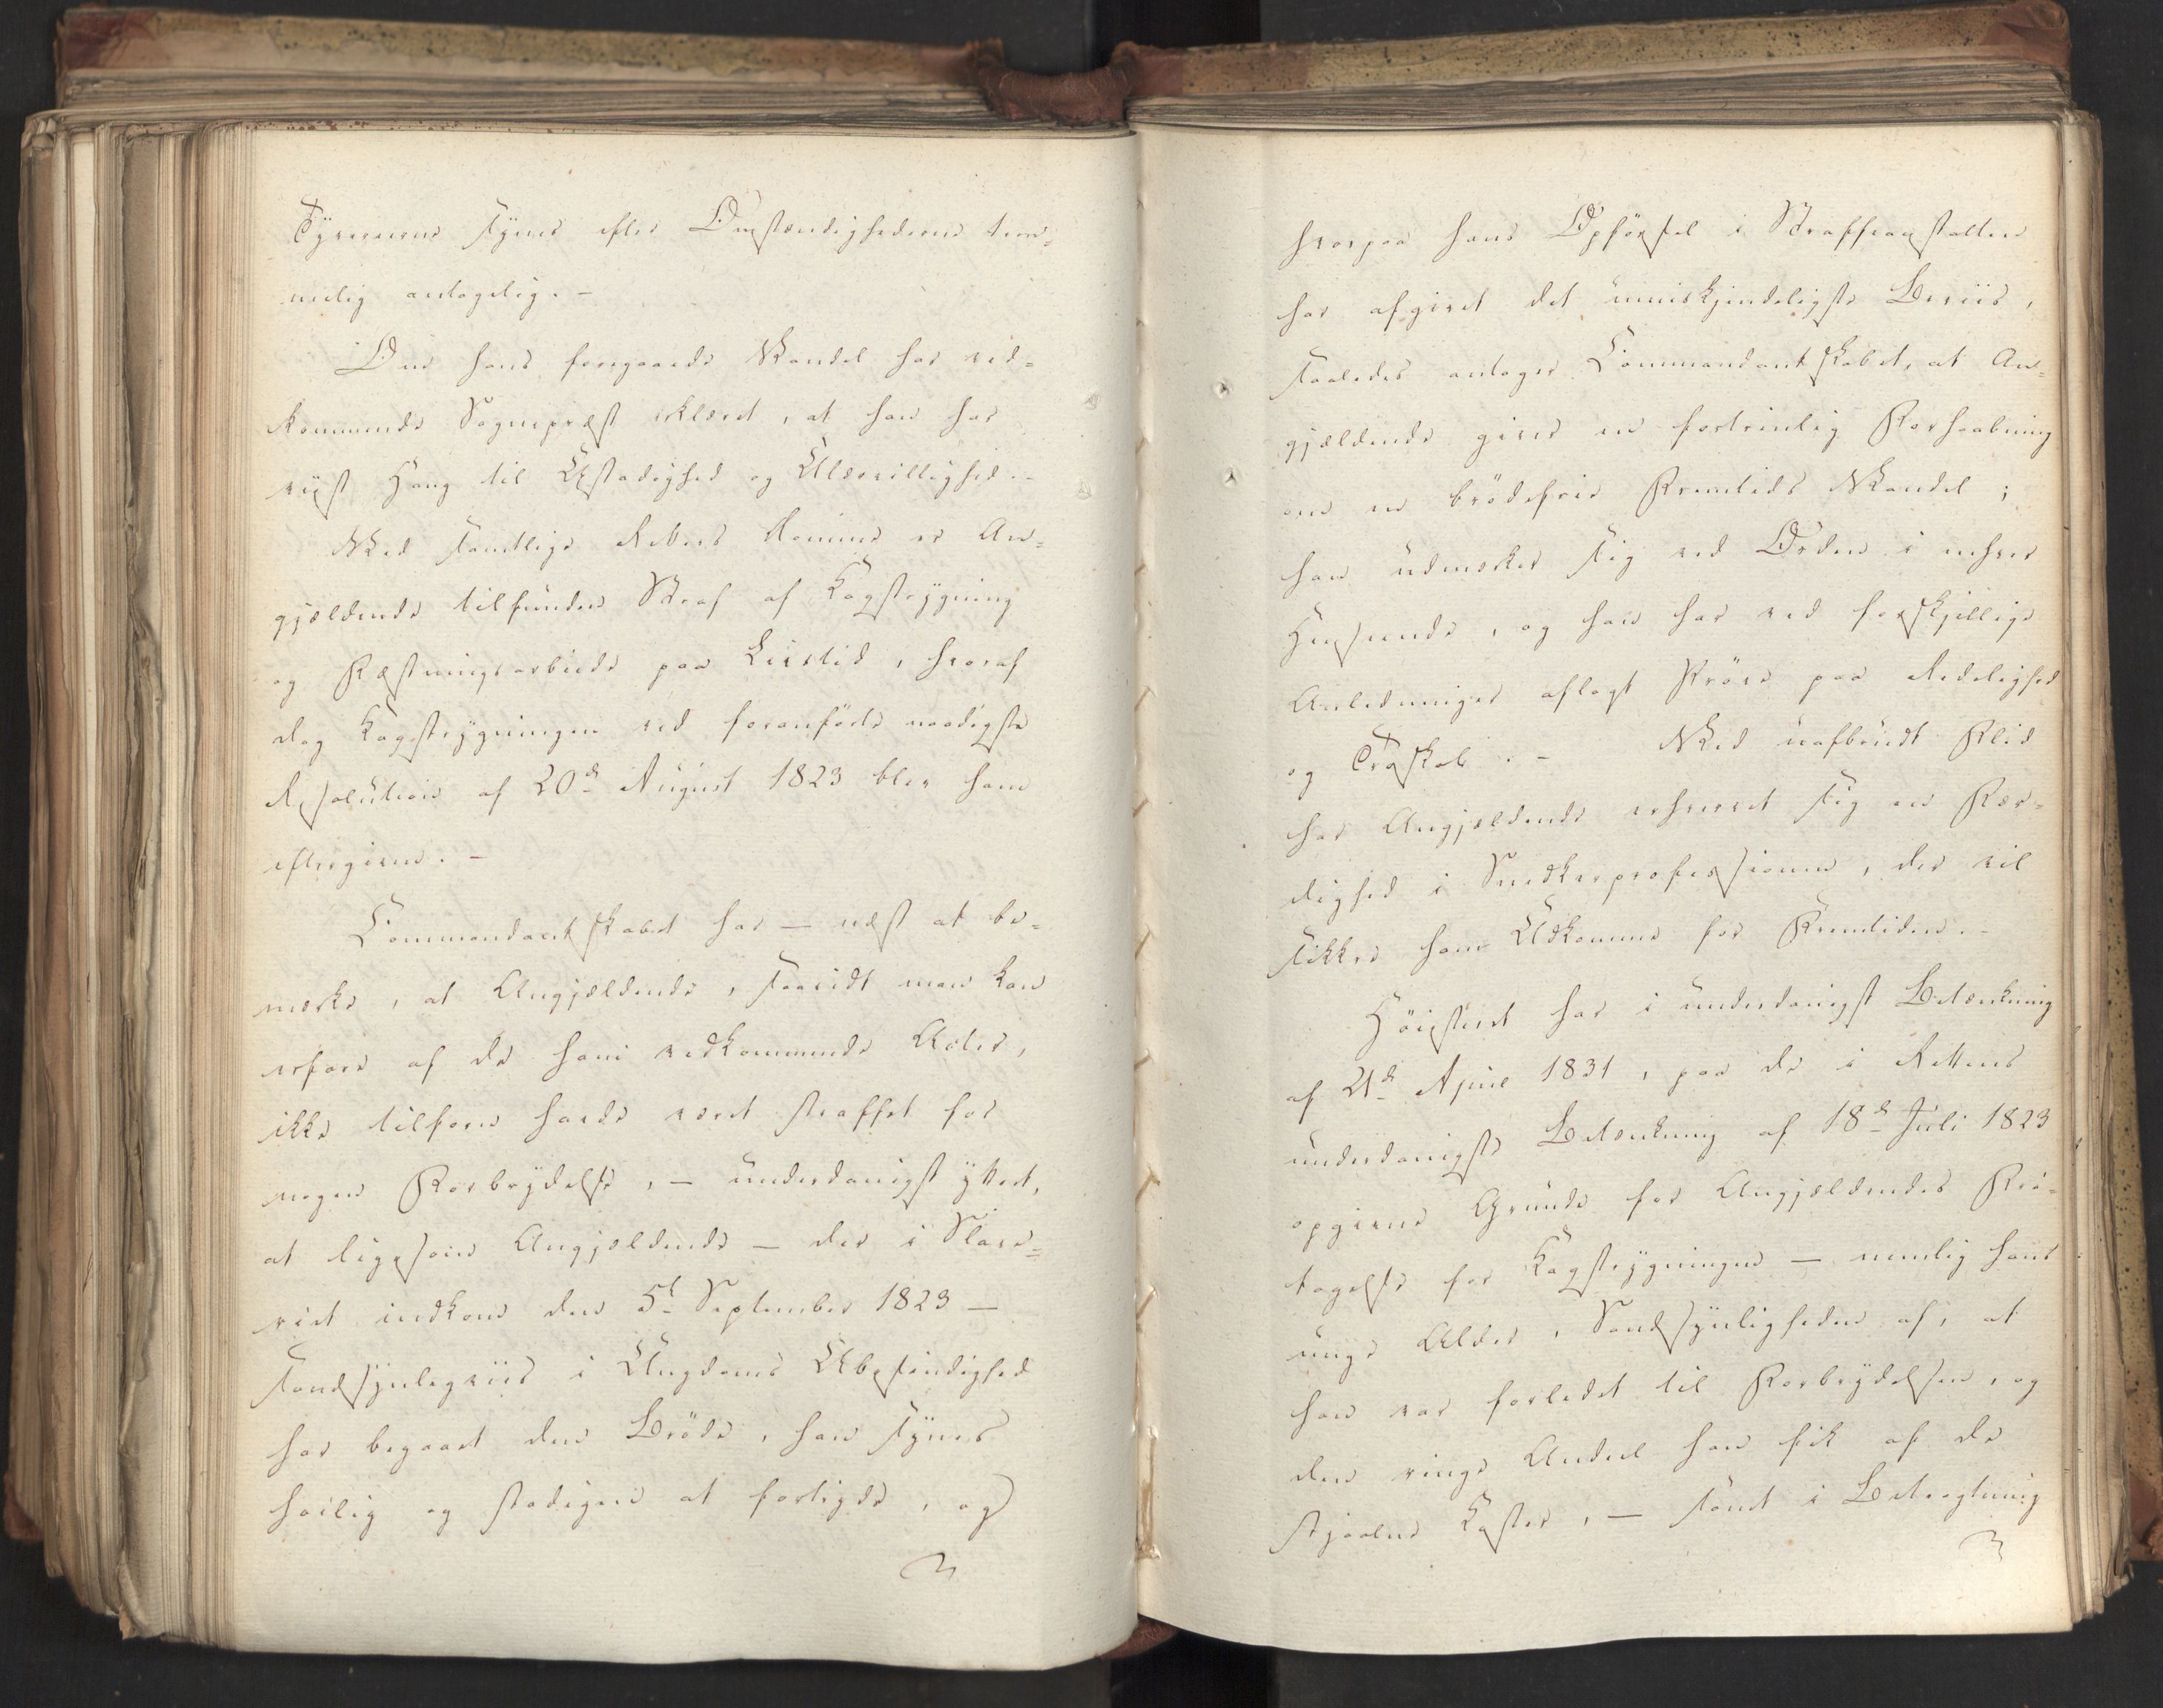 Tyverierne synes efter Omstændighederne tem¬
melig antagelig. -
Om hans foregaaende Vandel har ved¬
kommende Sognepræst erklæret, at han har
viist Hang til Ustadighed og Ulærvillighed. -
Ved samtlige Retters Domme er An¬
gjældende tilfunden Straf af Kagstrygning
og Fæstningsarbeide paa Livstid, hvoraf
dog Kagstrygningen ved foranførte naadigste
Resolution af 20d August 1823 blev ham
eftergiven. -
Commandantskabet har - næst at be¬
mærke, at Angjældende, saavidt man kan
erfare af de ham vedkommende Acter,
ikke tilforn havde været straffet for
nogen Forbrydelse, - underdanigst yttret,
at ligesom Angjældende - der i Slave¬
riet indkom den 5t September 1823 -
sandsynligviis i Ungdoms Ubesindighed
har begaaet den Brøde, han synes
hæilig og stadigen at fortryde, og
hvorpaa hans Opførsel i Straffeanstalten
har afgivet det umiskjendeligste Beviis,
saaledes antager Commandantskabet, at An¬
gjældende giver en fortrinlig Forhaabning
om en brødefrie Fremtids Vandel;
han udmærker sig ved Orden i enhver
Henseende, og han har ved forskjellige
Anledninger aflagt Prøve paa Redelighed
og Troskab. - Ved uafbrudt Flid
har Angjældende erhvervet sig en Fær¬
dighed i Snedkerprofessionen, der vil
sikkre ham Udkomme for Fremtiden. -
Höiesteret har i underdanigst Betænkning
af 21d April 1831, paa de i Rettens
underdanigste Betænkning af 18d Juli 1823
opgivne Grunde for Angjældendes Fri¬
tagelse for Kagstrygningen - nemlig hans
unge Alder, Sandsynligheden af, at
han var forledet til Forbrydelsen, og
den ringe Andeel han fik af de
stjaalne Koster, - samt i Betragtning